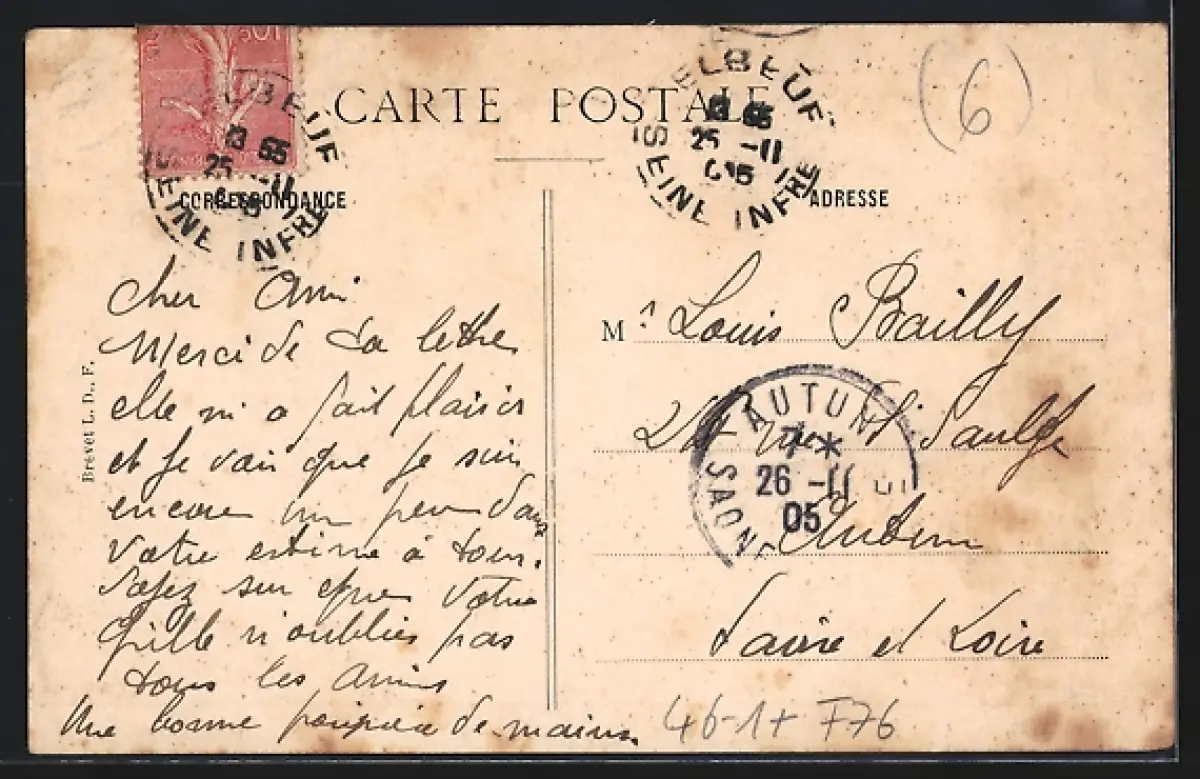 CARTE POSTALE
(6)
ELBEUF
13 55
25 -11
05
SEINE INFRE
ELBEUF
13 55
25 -11
05
SEINE INFRE
CORRESPONDANCE
ADRESSE
Brevet L. D., F.
Cher Ami
Merci de ta lettre
elle m a fait plaisir
et je vais que je suis
encore un peu dans
votre estime à tous.
Soyez sur que votre
n'oublies pas
tous les amis
Une bonne de mains
Mr Louis Bailly
rue
Autun
Saône et Loire
AUTUN
7 *
26 -11
05
SAONE
46-1+ F76